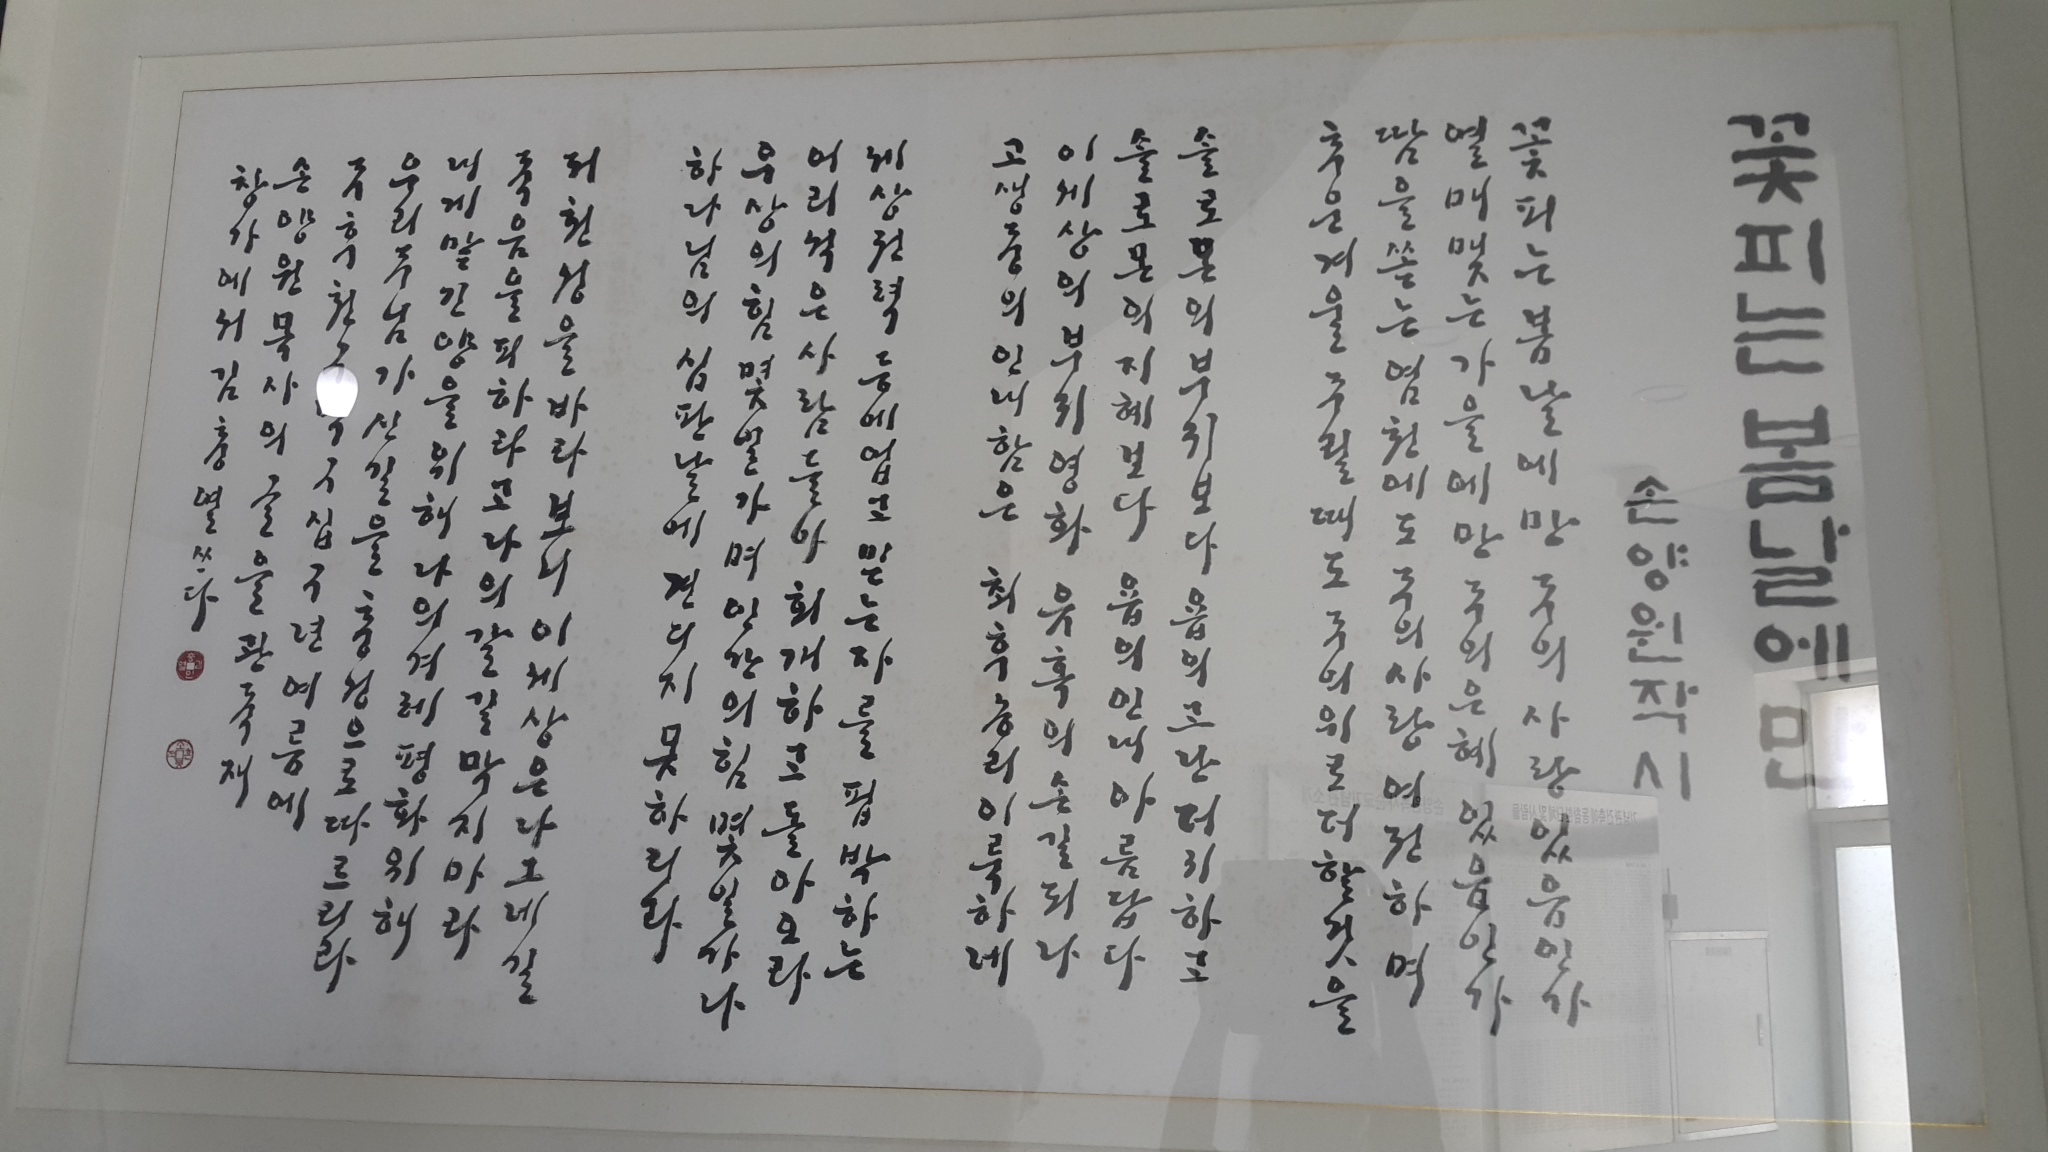 꽃피는 봄날에만
손양원 작시
꽃피는 봄날에만 주의 사랑 있음인가
열매 맺는 가을에만 주의 은혜 있음인가
땀을 쏟는 염천에도 주의 사랑 여전하며
추운 겨울 주릴 때도 주의 위로 더할 것을
솔로몬의 부귀보다 욥의 고난 더 귀하고
솔로몬의 지혜보다 욥의 인내 아름답다
이 세상의 부귀영화 유혹의 손길되나
고생 중의 인내함은 최후 승리 이룩하네
세상 권력 등에 업고 믿는 자를 핍박하는
어리석은 사람들아 회개하고 돌아오라
우상의 힘 몇 얼 가며 인간의 힘 몇 일 가나
하나님의 심판날에 견디지 못하리라
저 천성을 바라보니 이 세상은 나그네 길
죽음을 피하라고 나의 갈 길 막지 마라
내게 맡긴 양을 위해 나의 겨레 평화 위해
우리 주님 가신 길을 충성으로 따르리라
주후 천 구십구년 여름에
손양원 목사의 글을 관죽재
창가에서 김충열 쓰다